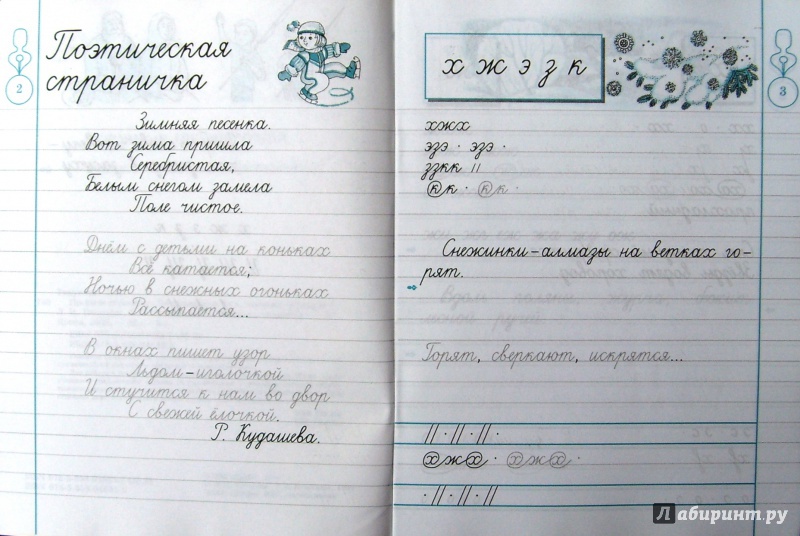 2
Поэтическая
страничка
Зимняя песенка.
Вот зима пришла
Серебристая,
Белым снегом замела
Поле чистое.
Днём с детьми на коньках
Всё катается;
Ночью в снежных огоньках
Рассыпается...
В окнах пишет узор
Льдом-иголочкой
И стучится к нам во двор
С свежей ёлочкой.
Р. Кудашева.
х ж э з к
3
хжх
эзэ · эзэ ·
ззкк //
кк · кк ·
Снежинки-алмазы на ветках го-
рят.
Горят, сверкают, искрятся...
// · // · // ·
хжх · хжх ·
· // · // · //
Лабиринт.ру